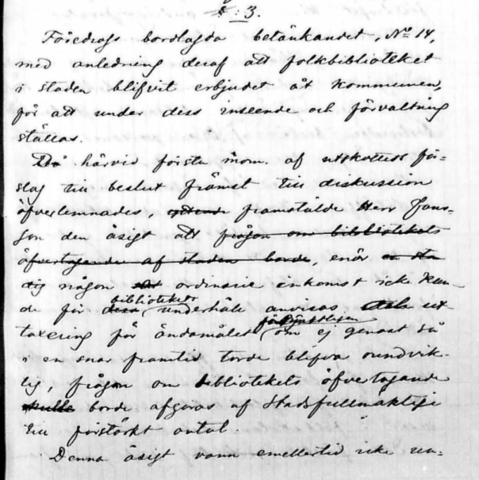 §. 3.
Föredrogs bordlagda betänkandet, No 14,
med anledning deraf att folkbiblioteket
i staden blifvit erbjudet åt kommunen,
för att under dess inseende och förvaltning
ställas.
Då härvid första mom. af utskottets för-
slag till beslut främst till diskussion
öfverlemnades, framstälde Herr Jans-
son den åsigt att frågan om bibliotekets
öfvertagande af staden borde, enär
någon ordinarie inkomst icke kun-
de för bibliotekets underhåll anvisas, ut-
taxering för ändamålet om ej genast så
i en snar framtid torde blifva oundvik-
lig, frågan om bibliotekets öfvertagande
skulle borde afgöras af Stadsfullmäktige
till förstärkt antal.
Denna åsigt vann emellertid icke un-